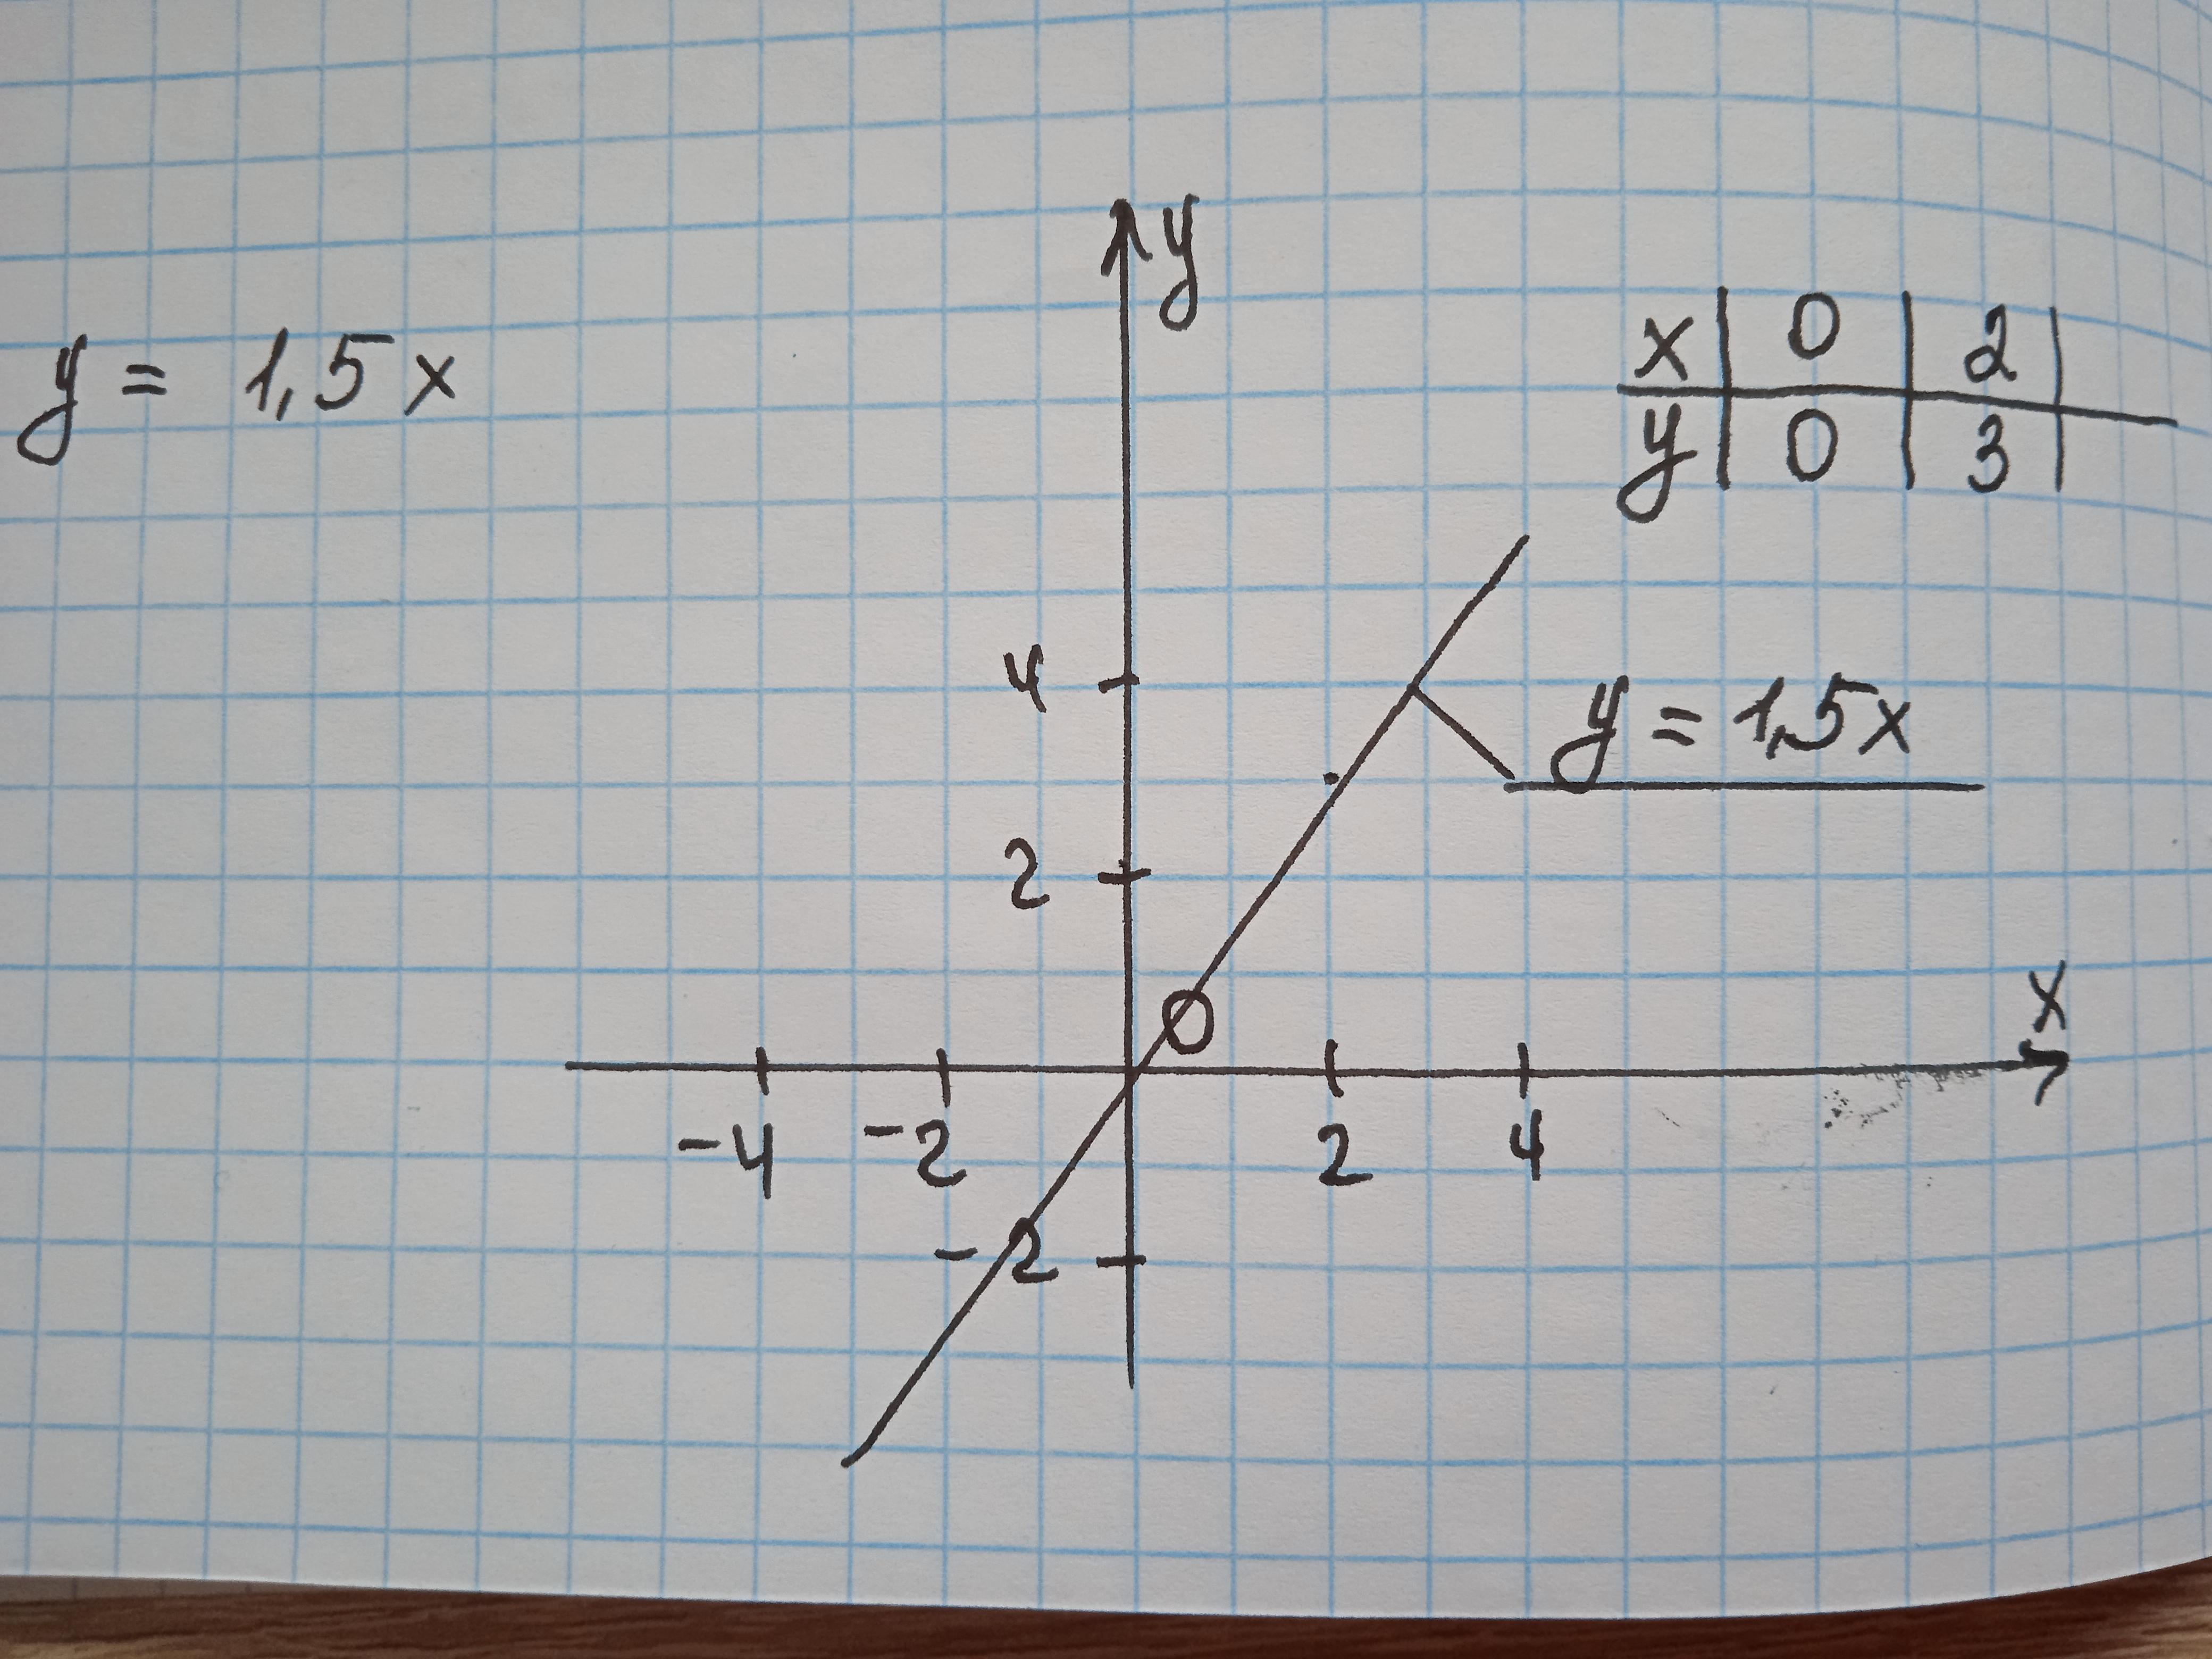 y
y = 1,5x
x | 0 | 2 |
y | 0 | 3 |
4
y = 1,5x
2
x
O
-4 -2 2 4
-2